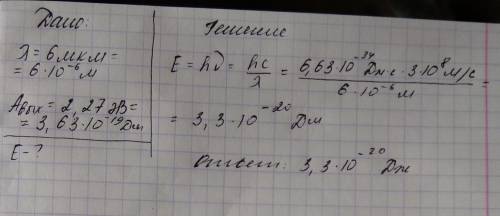 Дано:
λ = 6 мкм =
= 6·10⁻⁶ м
Aвых = 2,27 эВ =
= 3,63·10⁻¹⁹ Дж
E - ?
Решение
E = hν = hc/λ = 6,63·10⁻³⁴ Дж·с · 3·10⁸ м/с / 6·10⁻⁶ м =
= 3,3·10⁻²⁰ Дж
Ответ: 3,3·10⁻²⁰ Дж